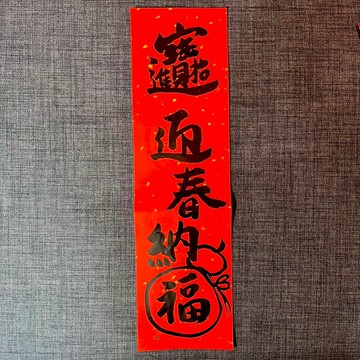 招財進寶
迎春納福